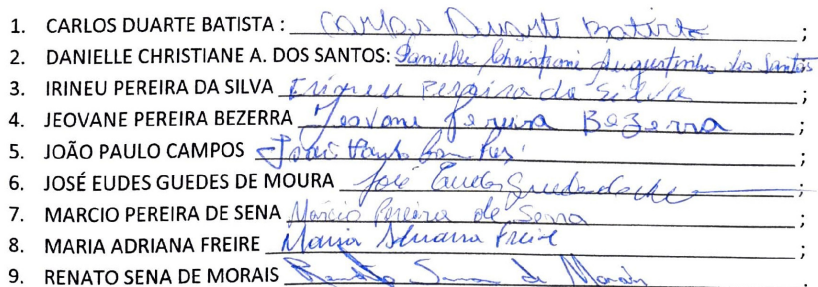 1. CARLOS DUARTE BATISTA : Carlos Duarte Batista ;
2. DANIELLE CHRISTIANE A. DOS SANTOS: Danielle Christiane Augustinho dos Santos
3. IRINEU PEREIRA DA SILVA Irineu Pereira da Silva ;
4. JEOVANE PEREIRA BEZERRA Jeovane Pereira Bezerra ;
5. JOÃO PAULO CAMPOS João Paulo Campos ;
6. JOSÉ EUDES GUEDES DE MOURA José Eudes Guedes de ;
7. MARCIO PEREIRA DE SENA Marcio Pereira de Sena ;
8. MARIA ADRIANA FREIRE Maria Adriana Freire ;
9. RENATO SENA DE MORAIS Renato Sena de Morais .